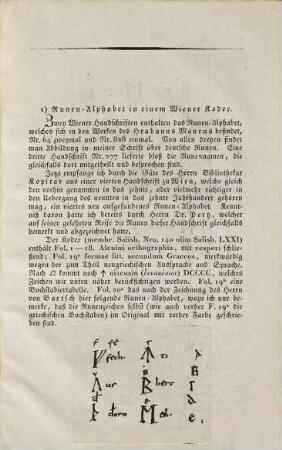 1) Runen-Alphabet in einem Wiener Kodex.
Zwey Wiener Handschriften enthalten das Runen-Alphabet,
welches sich in den Werken des Hrabanus Maurus befindet,
Nr. 64 zweymal und Nr. 828 einmal. Von allen dreyen findet
man Abbildung in meiner Schrift über deutsche Runen. Eine
dritte Handschrift Nr. 277 lieferte bloß die Runennamen, die
gleichfalls dort mitgetheilt und besprochen sind.
Jetzt empfange ich durch die Güte des Herrn Bibliothekar
Kopitar aus einer vierten Handschrift zu Wien, welche gleich
den vorhin genannten in das zehnte, oder vielmehr richtiger in
den Uebergang des neunten in das zehnte Jahrhundert gehören
mag, ein viertes neu aufgefundenes Runen-Alphabet. Kennt-
niß davon hatte ich bereits durch Herrn Dr. Pertz, welcher
auf seiner gelehrten Reise die Runen dieser Handschrift gleichfalls
bemerkt und abgezeichnet hatte.
Der Kodex (membr. Salisb. Nro. 140 olim Salisb. LXXI)
enthält Fol. 1 — 18. Alcuini orthographia, mit vesperi schlie-
ßend; Fol. 19ª formae litt. secundum Graecos, merkwürdig
wegen der zum Theil neugriechischen Aussprache und Sprache.
Nach Ω kommt noch ↑ DCCCC, welches
Zeichen wir unten näher berücksichtigen wollen. Fol. 19ᵇ eine
Buchstabiertabelle. Fol. 20ª das nach der Zeichnung des Herrn
von Bartsch hier folgende Runen-Alphabet, wozu ich nur be-
merke, daß die Runenzeichen selbst (wie auch vorher F. 19ª die
griechischen Buchstaben) im Original mit rother Farbe geschrie-
ben sind.
f fe t
fech Ti
ur berc
dorn